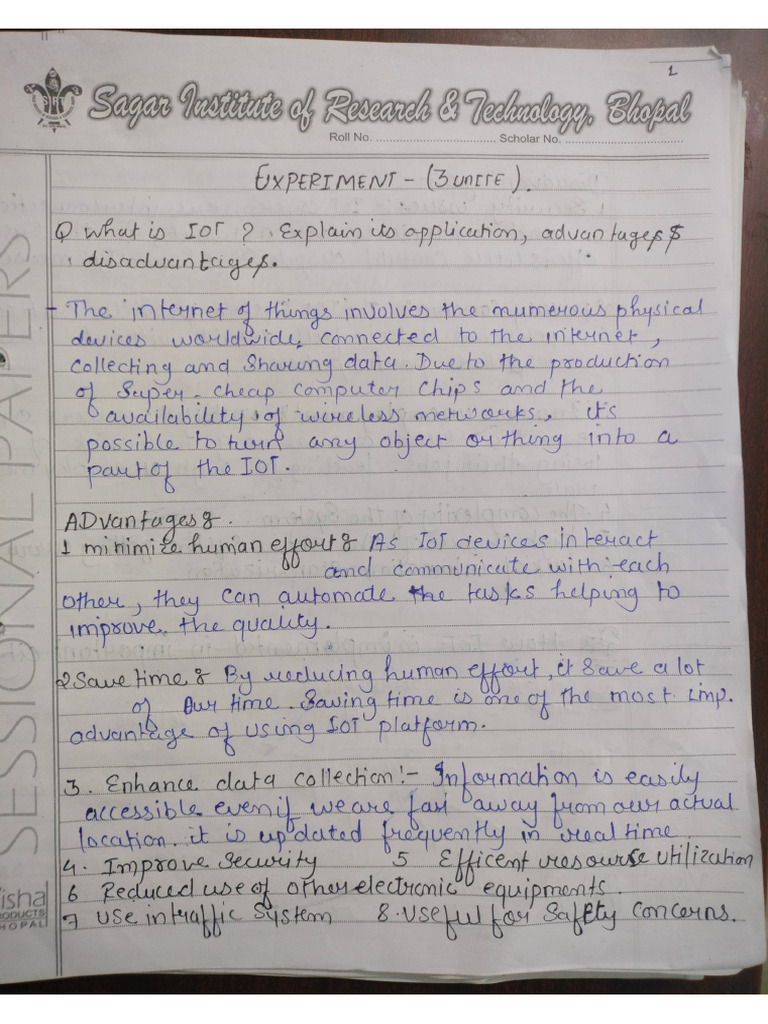 1
Sagar Institute of Research & Technology, Bhopal
Roll No. .................................. Scholar No. ..................................
EXPERIMENT - (3 UNITE).
Q What is IOT ? Explain its application, advantages &
disadvantages.
- The internet of things involves the numerous physical
devices worldwide, connected to the internet,
collecting and sharing data. Due to the production
of super-cheap computer chips and the
availability of wireless networks, it's
possible to turn any object or thing into a
part of the IOT.
ADvantages :
1 minimize human effort : As IoT devices interact
and communicate with each
other, they can automate the tasks helping to
improve the quality.
2 Save time : By reducing human effort, it save a lot
of our time. Saving time is one of the most imp.
advantage of using IoT platform.
3. Enhance data collection :- Information is easily
accessible even if we are far away from our actual
location. it is updated frequently in real time.
4. Improve Security 5 Efficent resource utilization
6 Reduced use of other electronic equipments.
7 Use in traffic System 8. Useful for Safety Concerns.
SESSIONAL PAPERS
isha
PRODUCTS
HOPAL